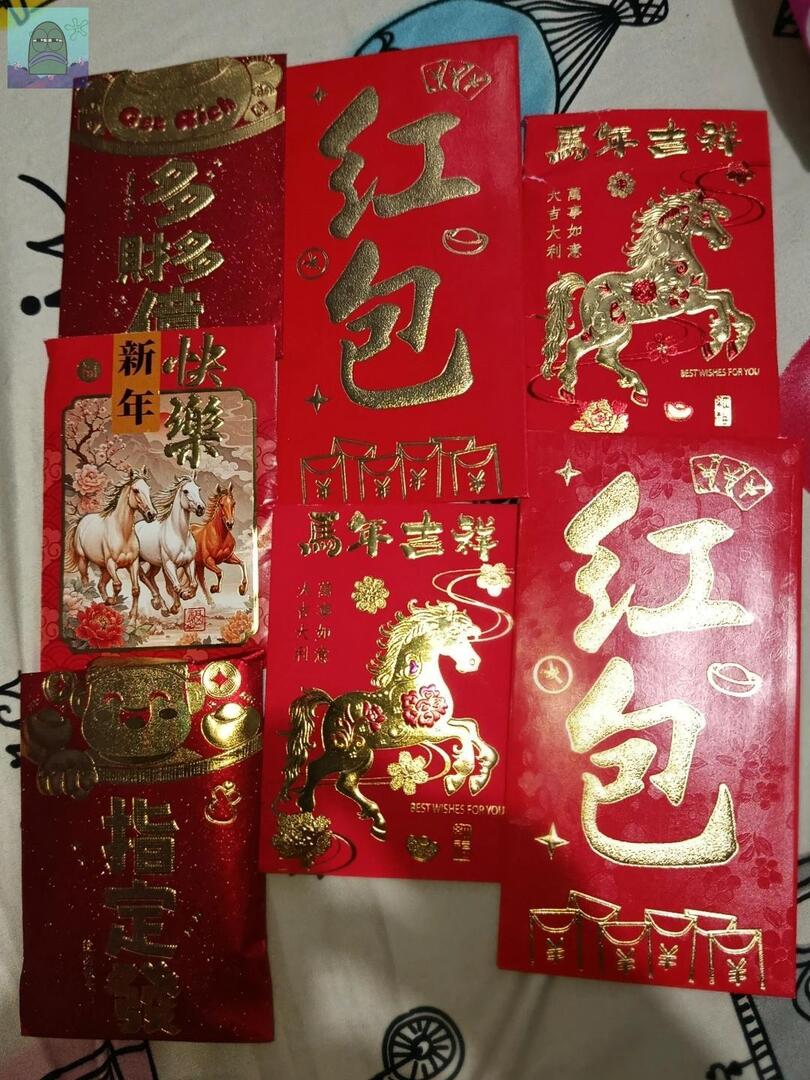 Get Rich
多
財多
億
红
包
馬年吉祥
萬事如意
大吉大利
BEST WISHES FOR YOU
新年
快樂
馬年吉祥
萬事如意
大吉大利
BEST WISHES FOR YOU
红
包
指
定
發